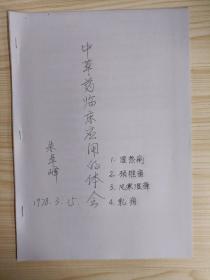 中草药临床应用的体会
朱卓峰
1978.3.15.
1. 湿热痢
2. 颈椎病
3. 风寒湿痹
4. 乳痈